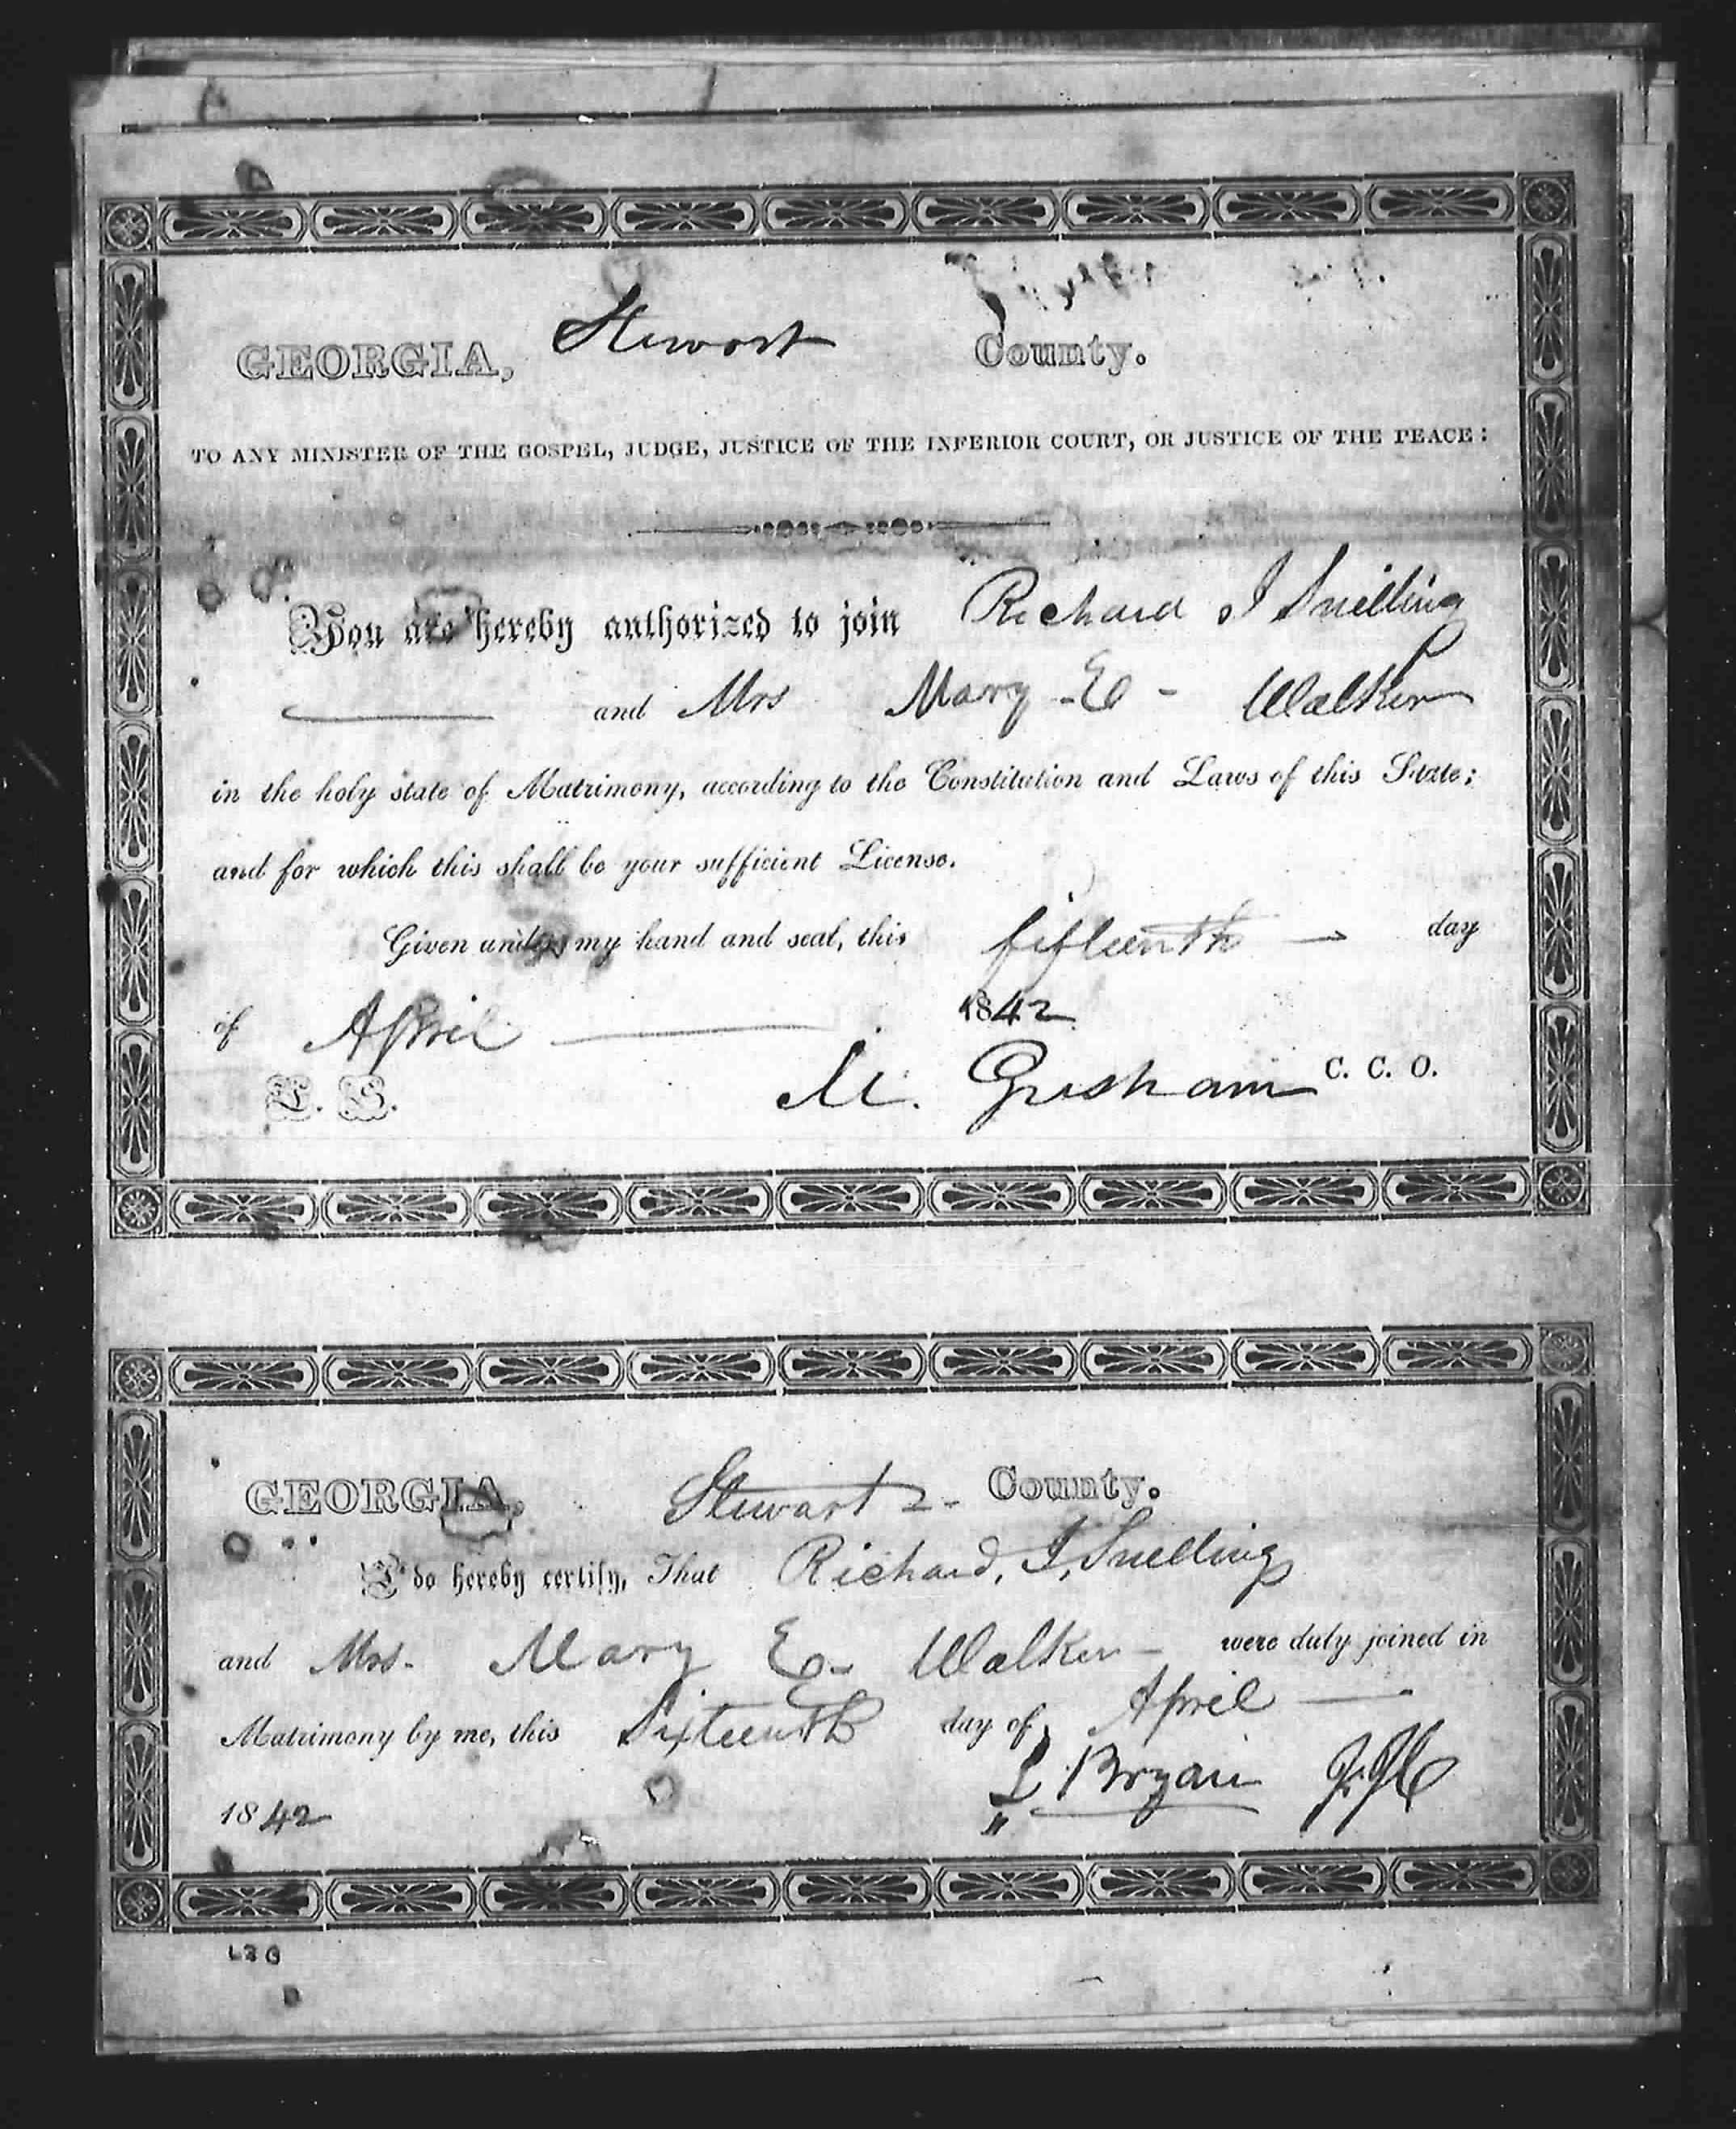 GEORGIA, Stewart County.
TO ANY MINISTER OF THE GOSPEL, JUDGE, JUSTICE OF THE INFERIOR COURT, OR JUSTICE OF THE PEACE:
You are hereby authorized to join Richard J Snelling
and Mrs Mary - E - Walker
in the holy state of Matrimony, according to the Constitution and Laws of this State;
and for which this shall be your sufficient License.
Given under my hand and seal, this fifteenth day
of April 1842
L. S. M. Gresham C. C. O.
GEORGIA, Stewart County.
I do hereby certify, That Richard, J, Snelling
and Mrs. Mary E- Walker - were duly joined in
Matrimony by me, this Sixteenth day of April
1842 L Bryan J.I.C